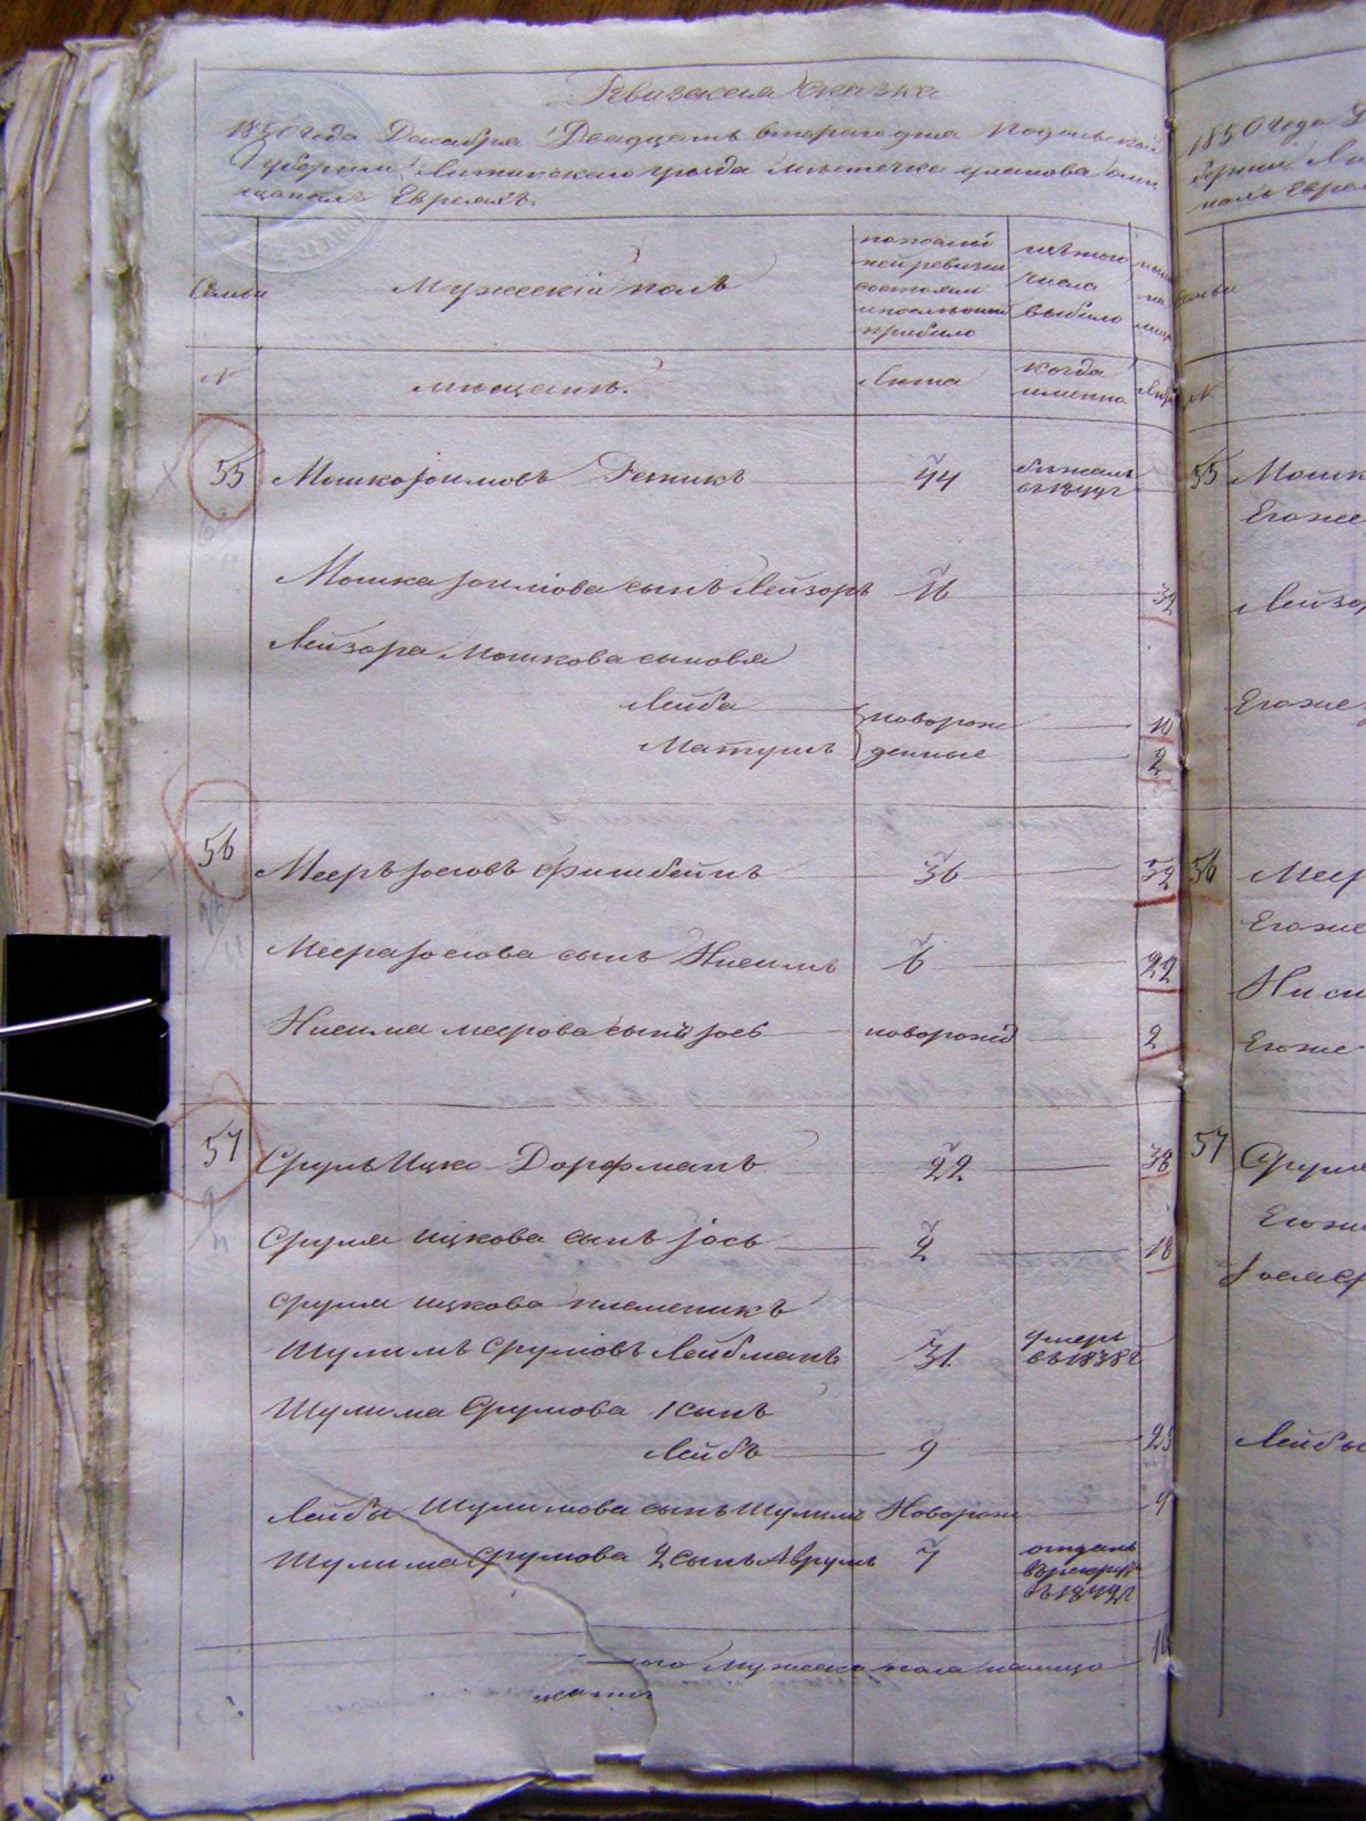 Ревизская сказка
1850 года Декабря Двадцать втораго дня Подольской
Губернии Литинскаго уезда местечка уланова
Евреяхъ.
Семьи
Мужескій полъ
по последней ревизии состояло и после оной прибыло
изъ того числа выбыло
ныне на лицо
N
мещане.
Лета
когда именно
Лета
55 Мошко Іоиловъ Резникъ 44 бежалъ въ 1844 г
Мошка Іоилова сынъ Лейзоръ 16 32
Лейзора Мошкова сыновья
Лейба новорож 10
Матушъ денные 2
56 Мееръ Іосіовъ Фишбейнъ 36 52
Меера Іосіова сынъ Нисимъ 6 22
Нисима меерова сынъ Іосъ новорожд 2
57 Сруль Ицко Дорфманъ 22 38
Сруля ицкова сынъ Іось 2 18
Сруля ицкова племеникъ
Шулимъ Сруліовъ Лейбманъ 31 умеръ въ 1838 г
Шулима Срулова 1 сынъ
Лейбъ 9 25
Лейбы Шулимова сынъ Шулимъ Новорож 4
Шулима Срулова 2 сынъ Аврумъ 7 отданъ въ рекруты въ 1842 г
мужеска пола налицо 10
55 Мошк
Егоже
Лейзор
Егоже
56 Меер
Егоже
Ниси
Егоже
57 Сруля
Егоже
Іося Ср
Лейбы